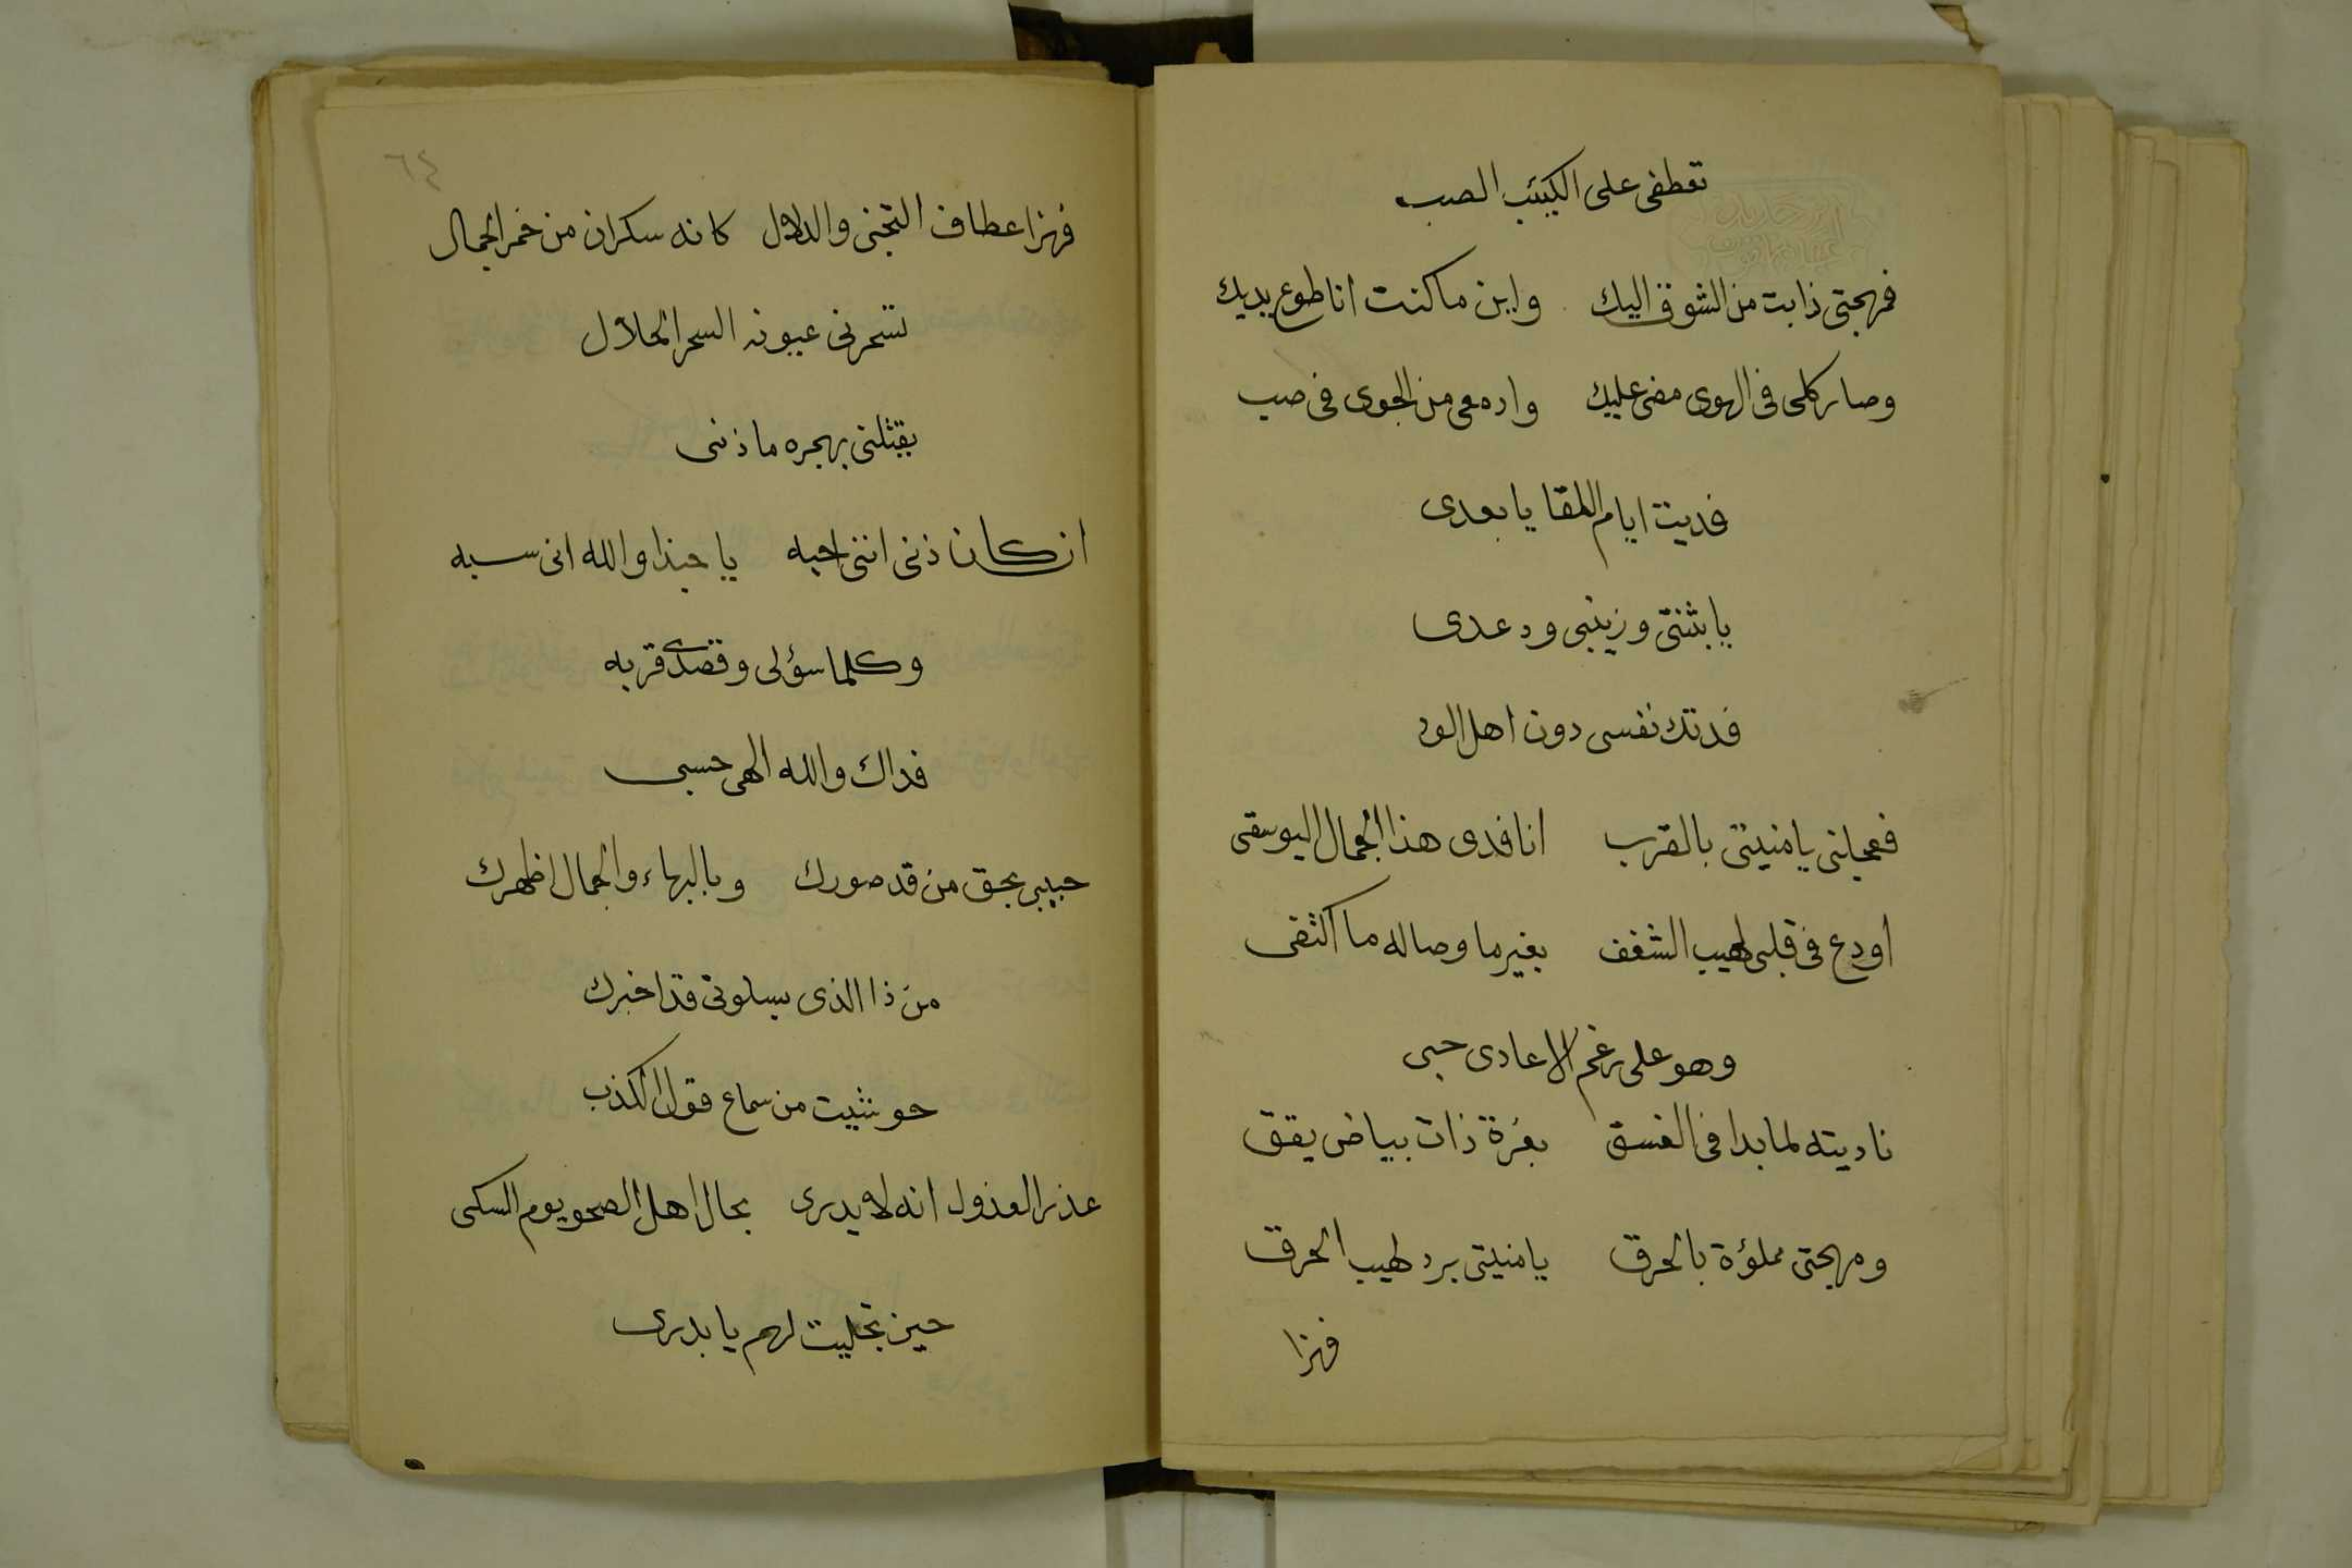 تعطفى على الكئيب الصب
فمهجتى ذابت من الشوق اليك واين ما كنت انا طوع يديك
وصار كلى فى الهوى مضى عليك وادمعى من الجوى فى صب
فديت ايام اللقا يا بعدى
يا بثنتى وزينبى ودعدى
فدتك نفسى دون اهل الود
فعجلنى يا منيتى بالقرب انا فدى هذا الجمال اليوسفى
اودع فى قلبى لهيب الشغف بغير ما وصاله ما اكتفى
وهو على رغم الاعادى حبى
ناديته لما بدا فى الغسق بغرة ذات بياض يقق
ومهجتى مملؤة بالحرق يا منيتى برد لهيب الحرق
فهزا
٦٤
فهزا عطاف التجنى والدلال كانه سكران من خمر الجمال
تسحرنى عيونه السحر الحلال
يقتلنى بهجره ما ذنبى
ان كان ذنبى اننى احبه يا حبذا والله انى سبه
وكلما سؤلى وقصدى قربه
فداك والله الهى حسبى
حبيبى بحق من قد صورك وبالبهاء والجمال اظهرك
من ذا الذى بسلوتى قد اخبرك
حوشيت من سماع قول الكذب
عذر العذول انه لا يدرى بحال اهل الصحو يوم السكر
حين تجليت لهم يا بدرى